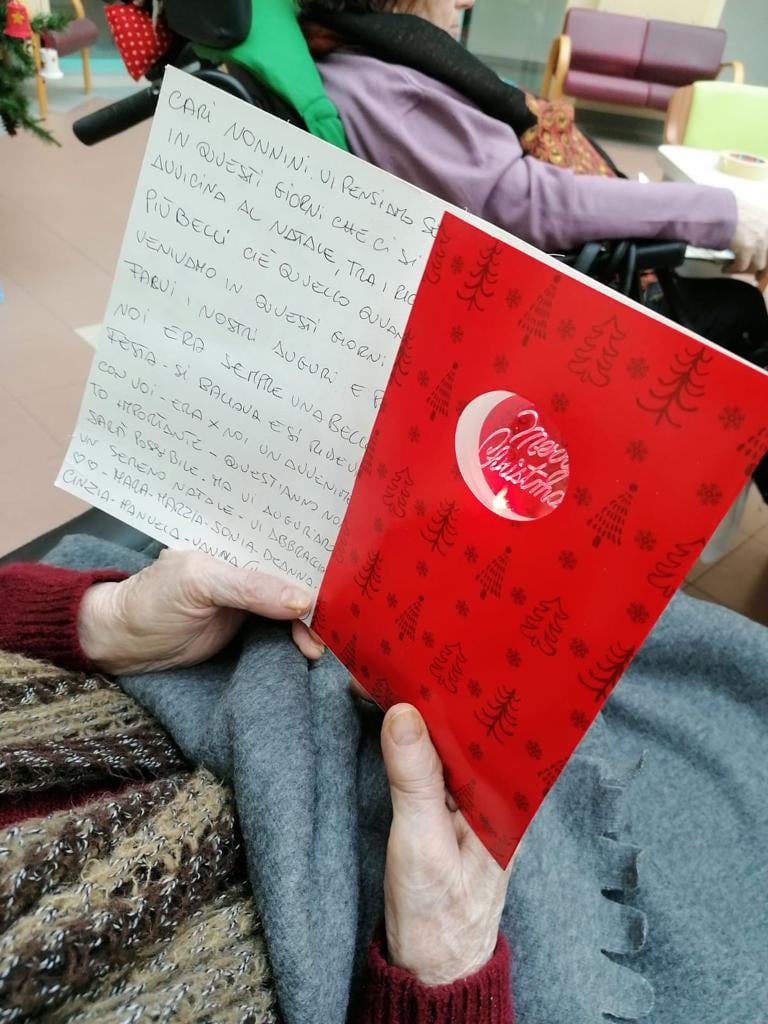 CARI NONNINI VI PENSIAMO SE
IN QUESTI GIORNI CHE CI SI
AVVICINA AL NATALE, TRA I RIC
PIÙ BELLI C'È QUELLO QUAN
VENIVAMO IN QUESTI GIORNI
FARVI I NOSTRI AUGURI E P
NOI ERA SEMPRE UNA BELL
FESTA - SI BALLAVA E SI RIDEV
CON VOI - ERA X NOI UN AVVENI
TO IMPORTANTE - QUEST'ANNO NO
SARÀ POSSIBILE. MA VI AUGURIAM
UN SERENO NATALE. VI ABBRACCIA
♡♡ - MARA - MARZIA - SONIA - DEANNA
CINZIA - MANUELA - VANNA
Merry
Christmas